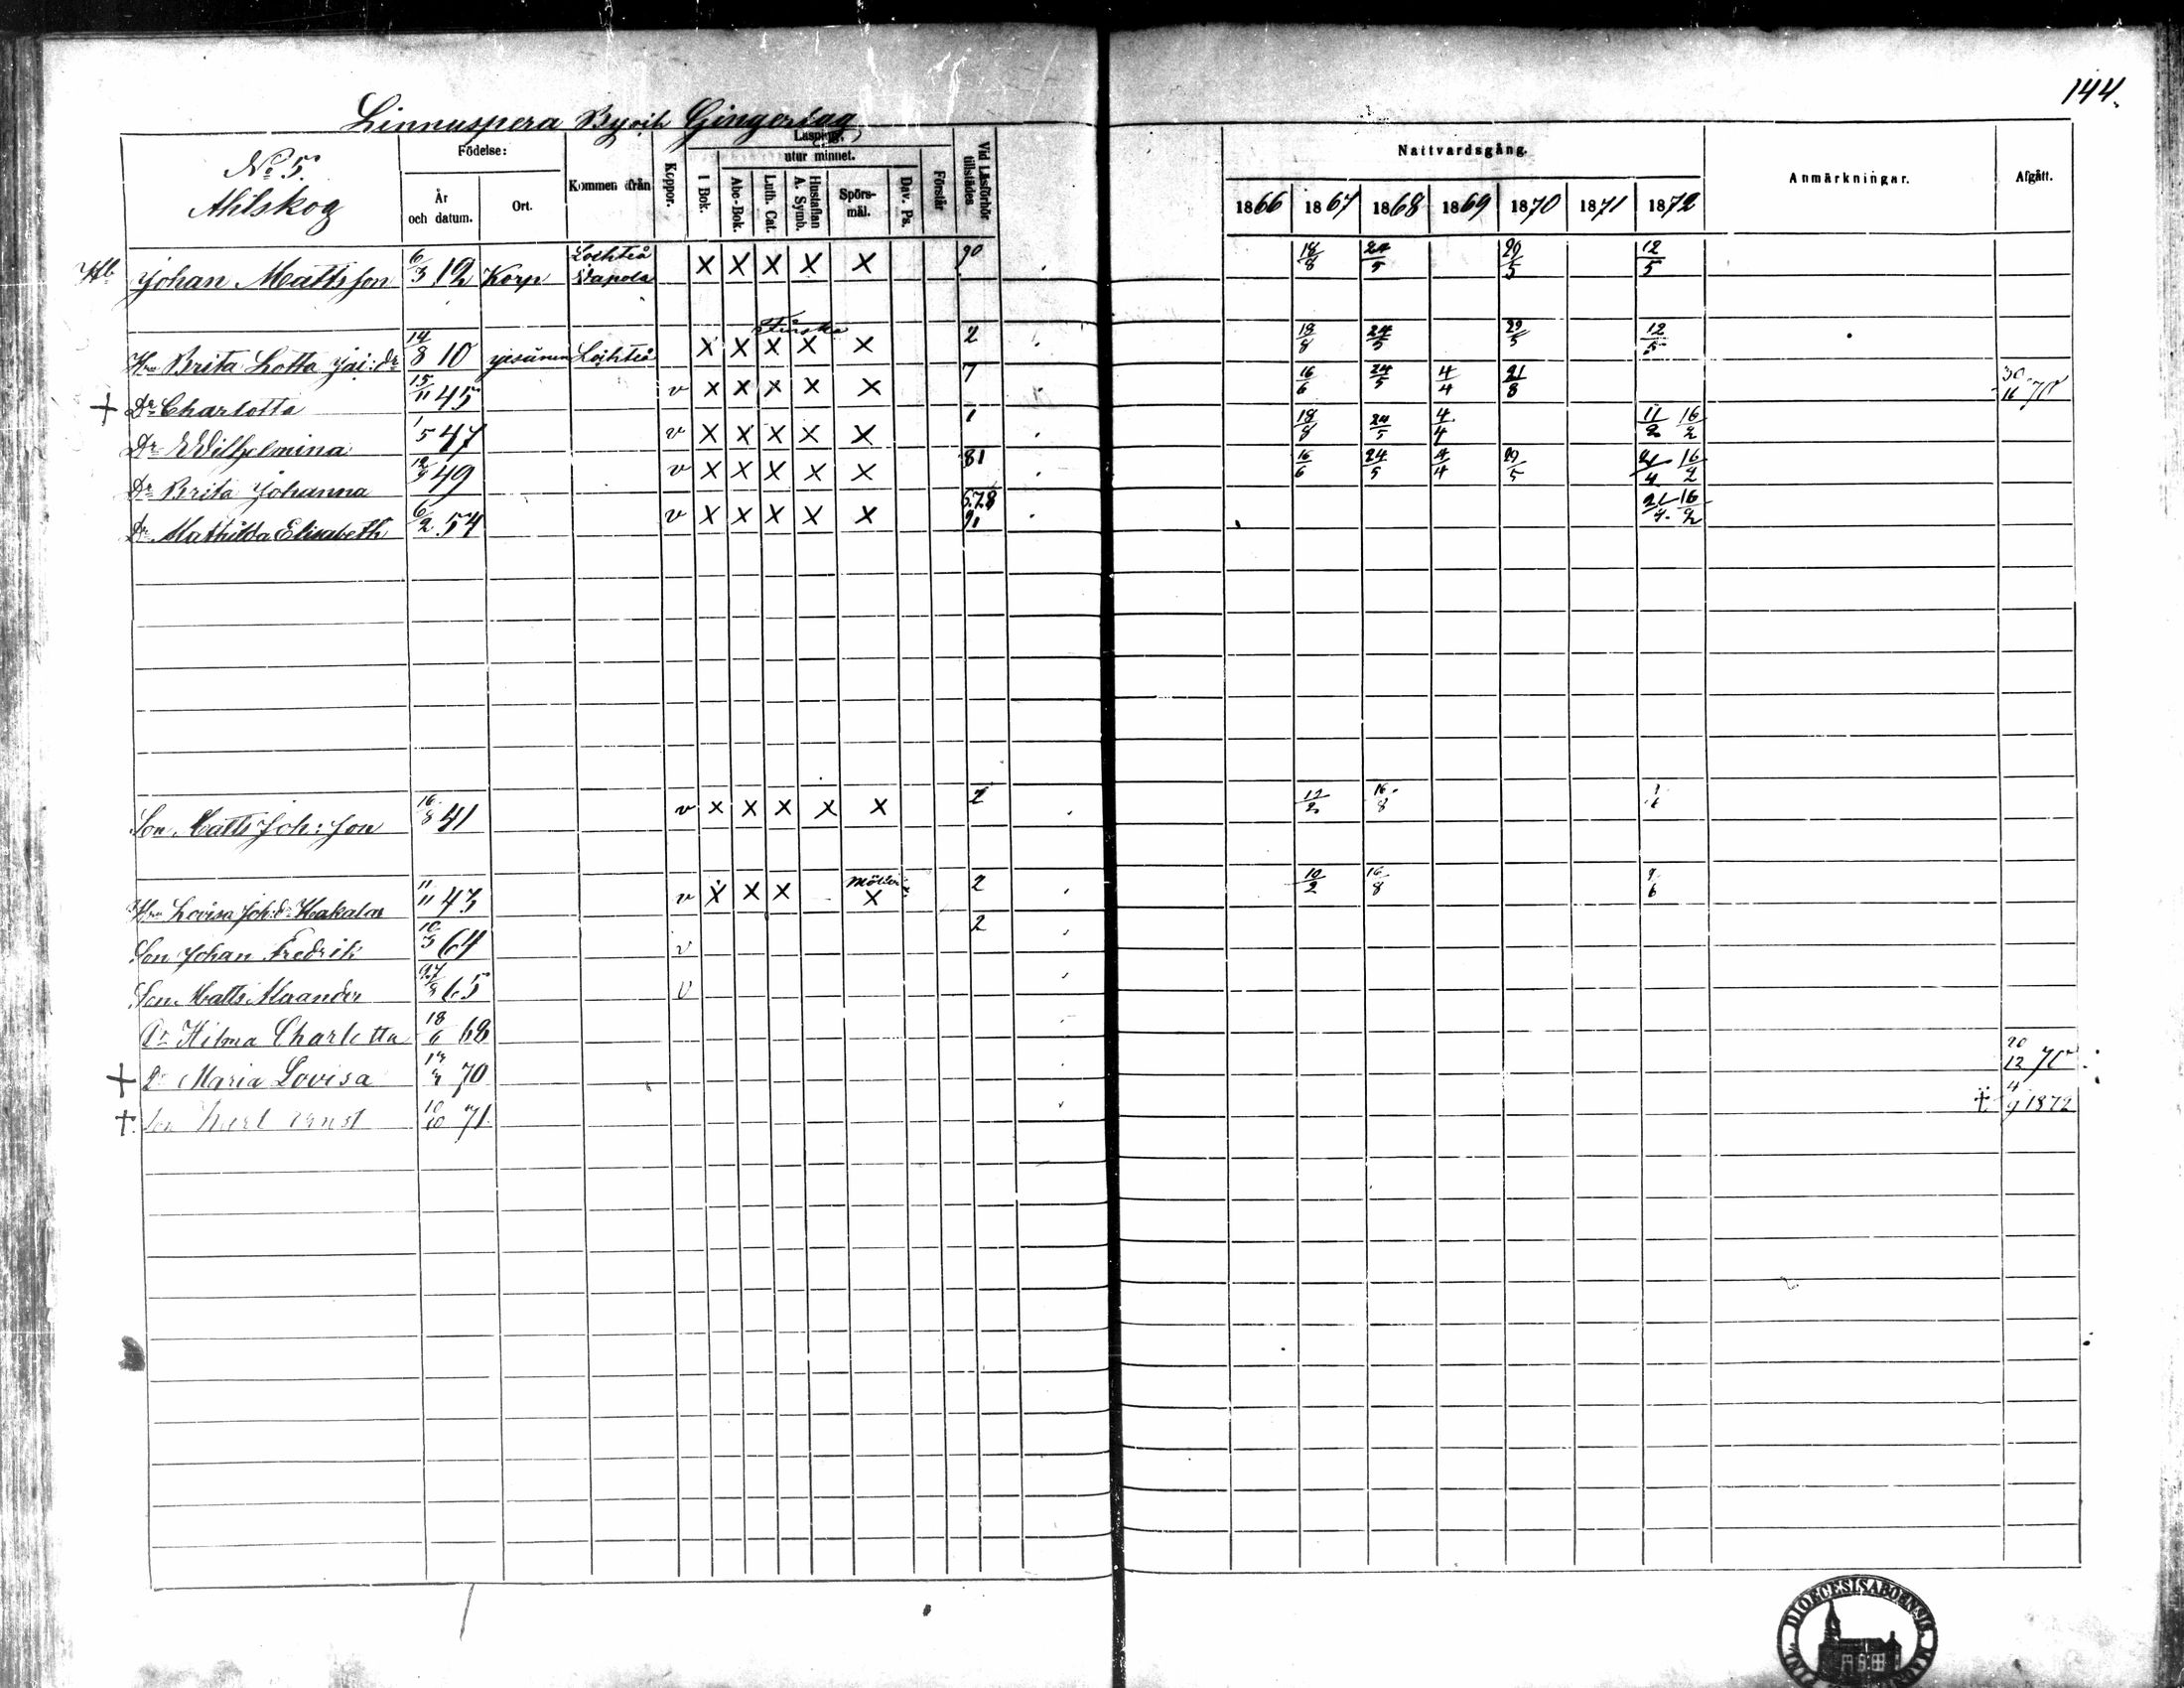 144.
Linnuspera Byoch Gingerlag
No 5.
Ahlskog
Födelse:
År och datum.
Ort.
Kommen ifrån
Koppor.
Läsning,
utur minnet.
I Bok.
Abc-Bok.
Luth. Cat.
Hustaflan A. Symb.
Spörs-mål.
Dav. Ps.
Förstår
Vid Läsförhör tillstädes
Nattvardsgång.
1866 1867 1868 1869 1870 1871 1872
Anmärkningar.
Afgått.
Johan Mattsson 6/3 12 Korp Lochteå X X X X X 90 18/8 24/5 29/5 12/5
Finska
Hu Brita Lotta Jai: dr 14/8 10 Lochteå X X X X X 2 18/8 24/5 29/5 12/5
+ Dr Charlotta 15/11 45 v X X X X X 7 16/6 24/5 4/4 21/8 70
Dr Wilhelmina 1/5 47 v X X X X X 1 18/8 24/5 4/4 11/2 16/2
Dr Brita Johanna 12/9 49 v X X X X X 81 16/6 24/5 4/4 29/5 21/4 16/2
Dr Mathilda Elisabeth 6/2 54 v X X X X X 5.7.8 91 21/4 16/2
Son Matts Joh: son 16/8 41 v X X X X X 2 12/2 16/8
Hu Lovisa Joh: dr Hakala 11/11 43 v X X X X 2 10/2 16/8 9/6
Son Johan Fredrik 10/3 64 v 2
Son Matts Alexander 27/8 65 v
Dr Hilma Charlotta 18/6 68
+ Dr Maria Lovisa 70 20/12 70
+ Son Karl Ernst 10/10 71 + 4/9 1872
DIOECESIS ABOENSIS